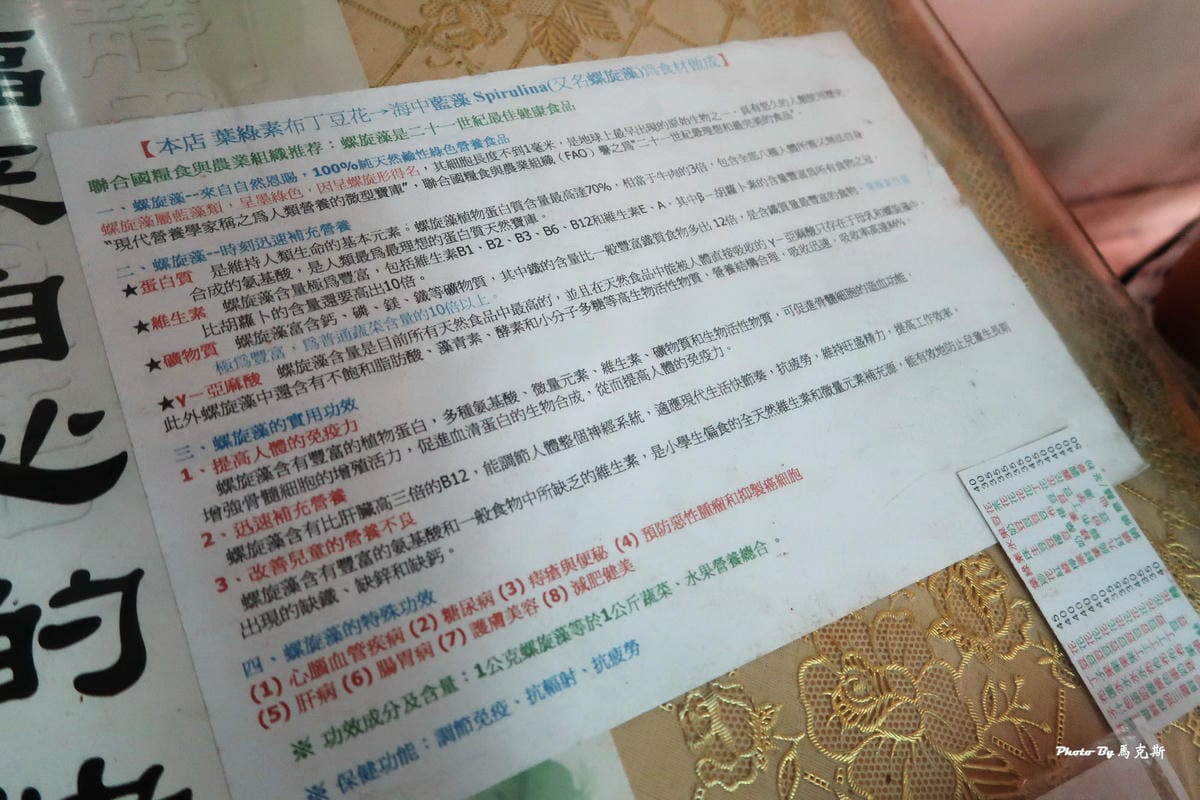 【本店 葉綠素布丁豆花→海中藍藻 Spirulina(又名螺旋藻)爲食材做成】
聯合國糧食與農業組織推荐：螺旋藻是二十一世紀最佳健康食品
一、螺旋藻--來自自然恩賜，100%純天然鹼性綠色營養食品
螺旋藻屬藍藻類，呈墨綠色，因呈螺旋形得名，其細胞長度不到1毫米，是地球上最早出現的原始生物之一，具有悠久的人類使用歷史，
"現代營養學家稱之爲人類營養的微型寶庫"，聯合國糧食與農業組織（FAO）譽之爲"二十一世紀最理想和最完美的食品"
二、螺旋藻--時刻迅速補充營養
★蛋白質 是維持人類生命的基本元素；螺旋藻植物蛋白質含量最高達70%，相當于牛肉的3倍，包含全部八種人體所需又無法自身
合成的氨基酸，是人類最爲最理想的蛋白質天然寶庫。
★維生素 螺旋藻含量極爲豐富，包括維生素B1、B2、B3、B6、B12和維生素E、A，其中β－胡蘿卜素的含量豐富爲所有食物之冠，
比胡蘿卜的含量還要高出10倍。
★礦物質 螺旋藻富含鈣、磷、鎂、鐵等礦物質，其中鐵的含量比一般豐富鐵質食物多出12倍，是含鐵質量最豐富的食物，
極爲豐富，爲普通蔬菜含量的10倍以上。
★γ－亞麻酸 螺旋藻含量是目前所有天然食品中最高的，並且在天然食品中能被人體直接吸收的γ－亞麻酸只存在于母乳和螺旋藻中。
此外螺旋藻中還含有不飽和脂肪酸、藻青素、酵素和小分子多糖等高生物活性物質，營養結構合理，吸收迅速，吸收率高達
三、螺旋藻的實用功效
1、提高人體的免疫力
螺旋藻含有豐富的植物蛋白，多種氨基酸、微量元素、維生素、礦物質和生物活性物質，可促進骨髓細胞的造血功能，
增強骨髓細胞的增殖活力，促進血清蛋白的生物合成，從而提高人體的免疫力。
2、迅速補充營養
螺旋藻含有比肝臟高三倍的B12，能調節人體整個神經系統，適應現代生活快節奏，抗疲勞，維持旺盛精力，提高工作效率。
3、改善兒童的營養不良
螺旋藻含有豐富的氨基酸和一般食物中所缺乏的維生素，是小學生偏食的全天然維生素和微量元素補充源，能有效地防止兒童生長期
出現的缺鐵、缺鋅和缺鈣。
四、螺旋藻的特殊功效
(1) 心腦血管疾病 (2) 糖尿病 (3) 痔瘡與便秘 (4) 預防惡性腫瘤和抑製癌細胞
(5) 肝病 (6) 腸胃病 (7) 護膚美容 (8) 減肥健美
※ 功效成分及含量：1公克螺旋藻等於1公斤蔬菜、水果營養總合。
※ 保健功能：調節免疫、抗輻射、抗疲勞
Photo By 馬克斯